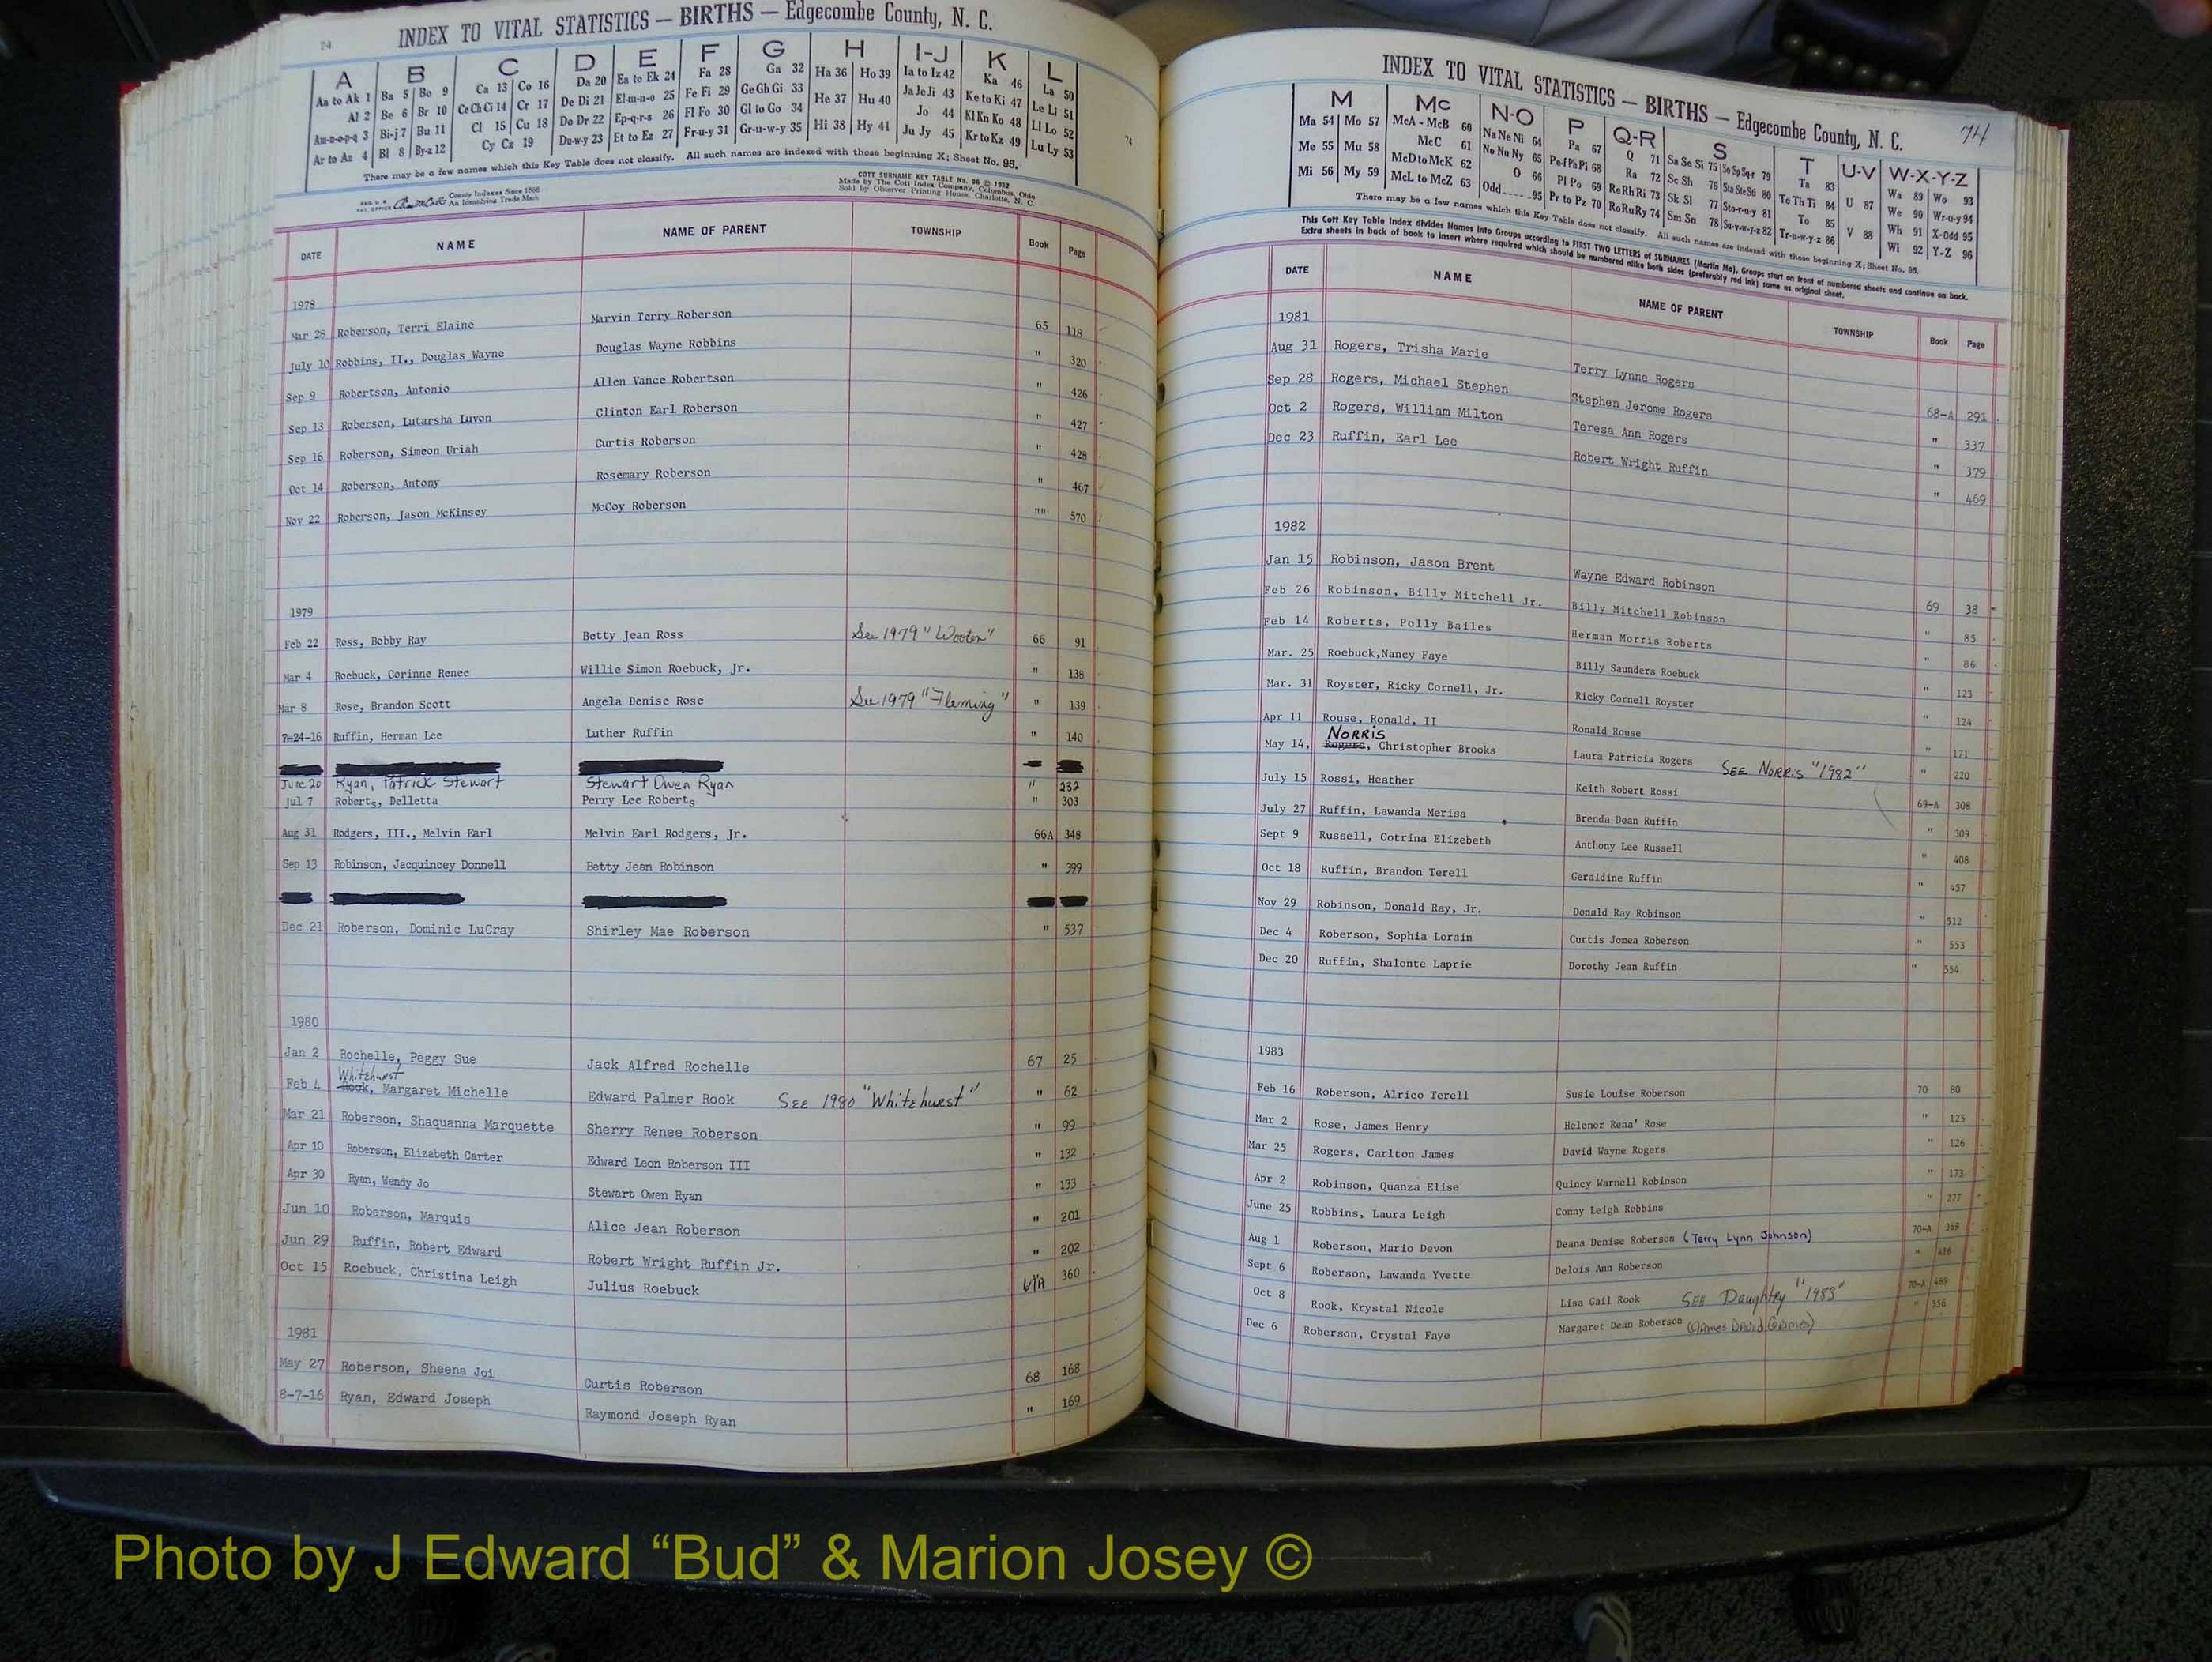 74
INDEX TO VITAL STATISTICS — BIRTHS — Edgecombe County, N. C.
A B C D E F G H I-J K L
Aa to Ak 1 Ba 5 Bo 9 Ca 13 Co 16 Da 20 Ea to Ek 24 Fa 28 Ga 32 Ha 36 Ho 39 Ia to Iz 42 Ka 46 La 50
Al 2 Be 6 Br 10 Ce Ch Ci 14 Cr 17 De Di 21 El-m-n-o 25 Fe Fi 29 Ge Gh Gi 33 He 37 Hu 40 Ja Je Ji 43 Ke to Ki 47 Le Li 51
Am-n-o-p-q 3 Bi-j 7 Bu 11 Cl 15 Cu 18 Do Dr 22 Ep-q-r-s 26 Fl Fo 30 Gl to Go 34 Hi 38 Hy 41 Jo 44 Kl Kn Ko 48 Ll Lo 52
Ar to Az 4 Bl 8 By-z 12 Cy Cz 19 Du-w-y 23 Et to Ez 27 Fr-u-y 31 Gr-u-w-y 35 Ju Jy 45 Kr to Kz 49 Lu Ly 53
There may be a few names which this Key Table does not classify. All such names are indexed with those beginning X; Sheet No. 95.
County Indexes Since 1888
An Identifying Trade Mark
COTT SURNAME KEY TABLE No. 96 © 1952
Made by The Cott Index Company, Columbus, Ohio
Sold by Observer Printing House, Charlotte, N. C.
74
DATE NAME NAME OF PARENT TOWNSHIP Book Page
1978
Mar 28 Roberson, Terri Elaine Marvin Terry Roberson 65 118
July 10 Robbins, II., Douglas Wayne Douglas Wayne Robbins " 320
Sep 9 Robertson, Antonio Allen Vance Robertson " 426
Sep 13 Roberson, Lutarsha Luvon Clinton Earl Roberson " 427
Sep 16 Roberson, Simeon Uriah Curtis Roberson " 428
Oct 14 Roberson, Antony Rosemary Roberson " 467
Nov 22 Roberson, Jason McKinsey McCoy Roberson "" 570
1979
Feb 22 Ross, Bobby Ray Betty Jean Ross See 1979 "Wooten" 66 91
Mar 4 Roebuck, Corinne Renee Willie Simon Roebuck, Jr. " 138
Mar 8 Rose, Brandon Scott Angela Denise Rose See 1979 "Fleming" " 139
7-24-16 Ruffin, Herman Lee Luther Ruffin " 140
June 20 Ryan, Patrick Stewart Stewart Owen Ryan " 232
Jul 7 Roberts, Delletta Perry Lee Roberts " 303
Aug 31 Rodgers, III., Melvin Earl Melvin Earl Rodgers, Jr. 66A 348
Sep 13 Robinson, Jacquincey Donnell Betty Jean Robinson " 399
Dec 21 Roberson, Dominic LuCray Shirley Mae Roberson " 537
1980
Jan 2 Rochelle, Peggy Sue Jack Alfred Rochelle 67 25
Whitehurst
Feb 4 Rook, Margaret Michelle Edward Palmer Rook See 1980 "Whitehurst" " 62
Mar 21 Roberson, Shaquanna Marquette Sherry Renee Roberson " 99
Apr 10 Roberson, Elizabeth Carter Edward Leon Roberson III " 132
Apr 30 Ryan, Wendy Jo Stewart Owen Ryan " 133
Jun 10 Roberson, Marquis Alice Jean Roberson " 201
Jun 29 Ruffin, Robert Edward Robert Wright Ruffin Jr. " 202
Oct 15 Roebuck, Christina Leigh Julius Roebuck 360
1981
May 27 Roberson, Sheena Joi Curtis Roberson 68 168
8-7-16 Ryan, Edward Joseph Raymond Joseph Ryan " 169
INDEX TO VITAL STATISTICS — BIRTHS — Edgecombe County, N. C. 74
M Mc N-O P Q-R S T U-V W-X-Y-Z
Ma 54 Mo 57 McA - McB 60 Na Ne Ni 64 Pa 67 Q 71 Sa Se Si 75 So Sp Sq-r 79 Ta 83 U 87 Wa 89 Wo 93
Me 55 Mu 58 McC 61 No Nu Ny 65 Pe-f Ph Pi 68 Ra 72 Sc Sh 76 Sta Ste Sti 80 Te Th Ti 84 V 88 We 90 Wr-u-y 94
Mi 56 My 59 McD to McK 62 O 66 Pl Po 69 Re Rh Ri 73 Sk Sl 77 Sto-r-u-y 81 To 85 Wh 91 X-Odd 95
McL to McZ 63 Odd 95 Pr to Pz 70 Ro Ru Ry 74 Sm Sn 78 Su-v-w-y-z 82 Tr-u-w-y-z 86 Wi 92 Y-Z 96
There may be a few names which this Key Table does not classify. All such names are indexed with those beginning X; Sheet No. 95.
This Cott Key Table Index divides Names into Groups according to FIRST TWO LETTERS of SURNAMES (Martin Ma), Groups start on front of numbered sheets and continue on back.
Extra sheets in back of book to insert where required which should be numbered alike both sides (preferably red ink) same as original sheet.
DATE NAME NAME OF PARENT TOWNSHIP Book Page
1981
Aug 31 Rogers, Trisha Marie Terry Lynne Rogers 68-A 291
Sep 28 Rogers, Michael Stephen Stephen Jerome Rogers " 337
Oct 2 Rogers, William Milton Teresa Ann Rogers " 379
Dec 23 Ruffin, Earl Lee Robert Wright Ruffin " 469
1982
Jan 15 Robinson, Jason Brent Wayne Edward Robinson 69 38
Feb 26 Robinson, Billy Mitchell Jr. Billy Mitchell Robinson " 85
Feb 14 Roberts, Polly Bailes Herman Morris Roberts " 86
Mar. 25 Roebuck,Nancy Faye Billy Saunders Roebuck " 123
Mar. 31 Royster, Ricky Cornell, Jr. Ricky Cornell Royster " 124
Apr 11 Rouse, Ronald, II Ronald Rouse " 171
NORRIS
May 14, Rogers, Christopher Brooks Laura Patricia Rogers SEE NORRIS "1982" " 220
July 15 Rossi, Heather Keith Robert Rossi 69-A 308
July 27 Ruffin, Lawanda Merisa Brenda Dean Ruffin " 309
Sept 9 Russell, Cotrina Elizebeth Anthony Lee Russell " 408
Oct 18 Ruffin, Brandon Terell Geraldine Ruffin " 457
Nov 29 Robinson, Donald Ray, Jr. Donald Ray Robinson " 512
Dec 4 Roberson, Sophia Lorain Curtis Jomea Roberson " 553
Dec 20 Ruffin, Shalonte Laprie Dorothy Jean Ruffin " 554
1983
Feb 16 Roberson, Alrico Terell Susie Louise Roberson 70 80
Mar 2 Rose, James Henry Helenor Rena' Rose " 125
Mar 25 Rogers, Carlton James David Wayne Rogers " 126
Apr 2 Robinson, Quanza Elise Quincy Warnell Robinson " 173
June 25 Robbins, Laura Leigh Conny Leigh Robbins " 277
Aug 1 Roberson, Mario Devon Deana Denise Roberson (Terry Lynn Johnson) 70-A 368
Sept 6 Roberson, Lawanda Yvette Delois Ann Roberson " 416
Oct 8 Rook, Krystal Nicole Lisa Gail Rook SEE Daughtry "1983" 70-A 469
Dec 6 Roberson, Crystal Faye Margaret Dean Roberson (James David Grimes) " 556
Photo by J Edward “Bud” & Marion Josey ©